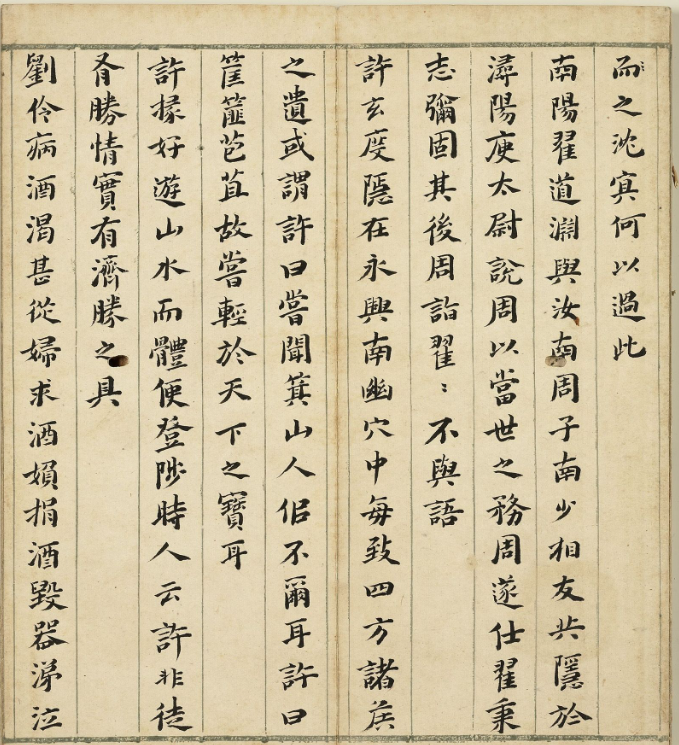 而之沈冥何以過此
南陽翟道淵與汝南周子南少相友共隱於
潯陽庾太尉說周以當世之務周遂仕翟秉
志彌固其後周詣翟〻不與語
許玄度隱在永興南幽穴中每致四方諸侯
之遺或謂許曰嘗聞箕山人佀不爾耳許曰
筐篚苞苴故當輕於天下之寶耳
許掾好遊山水而體便登陟時人云許非徒
有勝情實有濟勝之具
劉伶病酒渴甚從婦求酒婦捐酒毀器涕泣